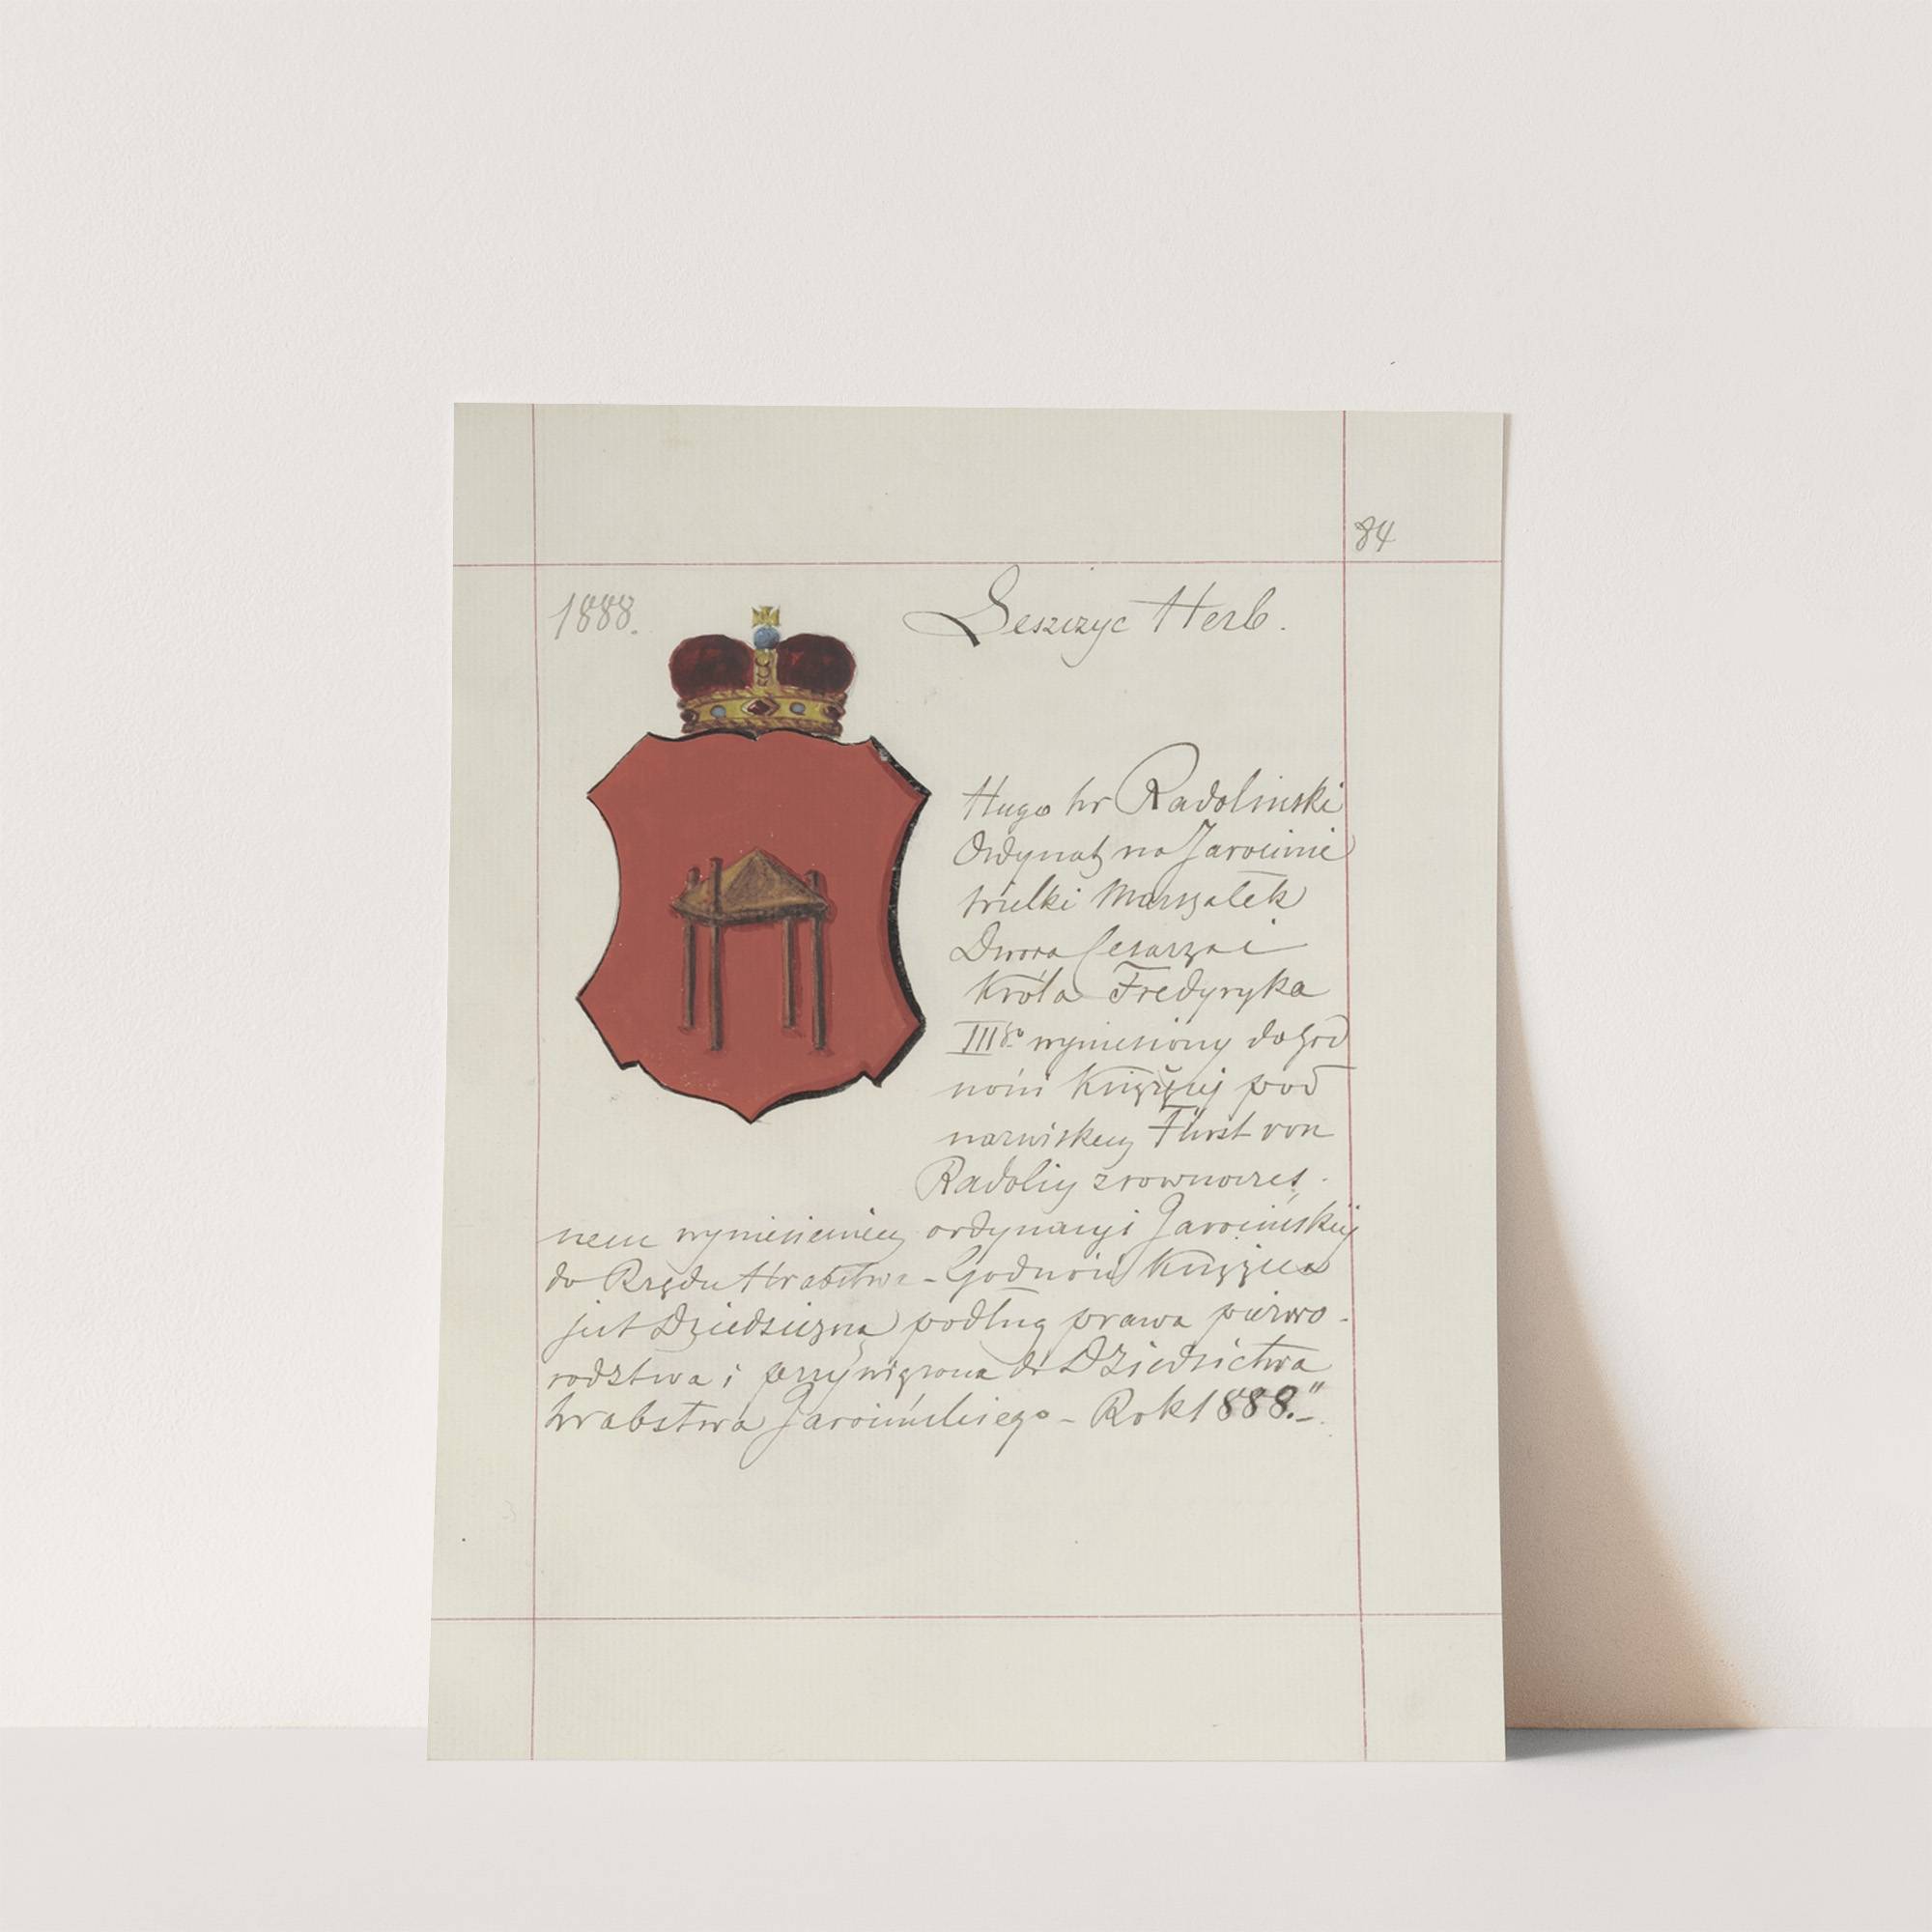 84
1888.
Leszczyc Herb.
Hugo hr Radolinski
Ordynat na Jarocinie
wielki Marszałek
Dwora Cesarza i
Króla Fredyryka
III go wyniesiony do god
ności Książęcej pod
nazwiskem Fürst von
Radolin zrownoczes.
nem wyniesieniem ordynacyi Jarocińskiej
do Rzędu Hrabstwa - Godność Książęca
jest Dziedziczną podług prawa pierwo-
rodztwa i przywiązana do Dziedzictwa
hrabstwa Jarocińskiego - Rok 1888."-.